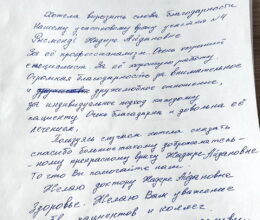 Хотела выразить слова благодарности
Нашему участковому врачу участка №4
Жидеге Айдановне
За её профессионализм. Очень хороший
специалист. За её хорошую работу
Огромная благодарность за внимательное
дружелюбное отношение,
за индивидуальный подход каждому
пациенту. Очень благодарна и довольна её
лечением.
Пользуясь случаем хотела сказать
спасибо большое такому доброжелатель-
ному прекрасному врачу Жидеге Айдановне
То что Вы помогаете нам!
Желаю доктору Айдановне
Здоровье. Желаю Вам уважение
пациентов и коллег.